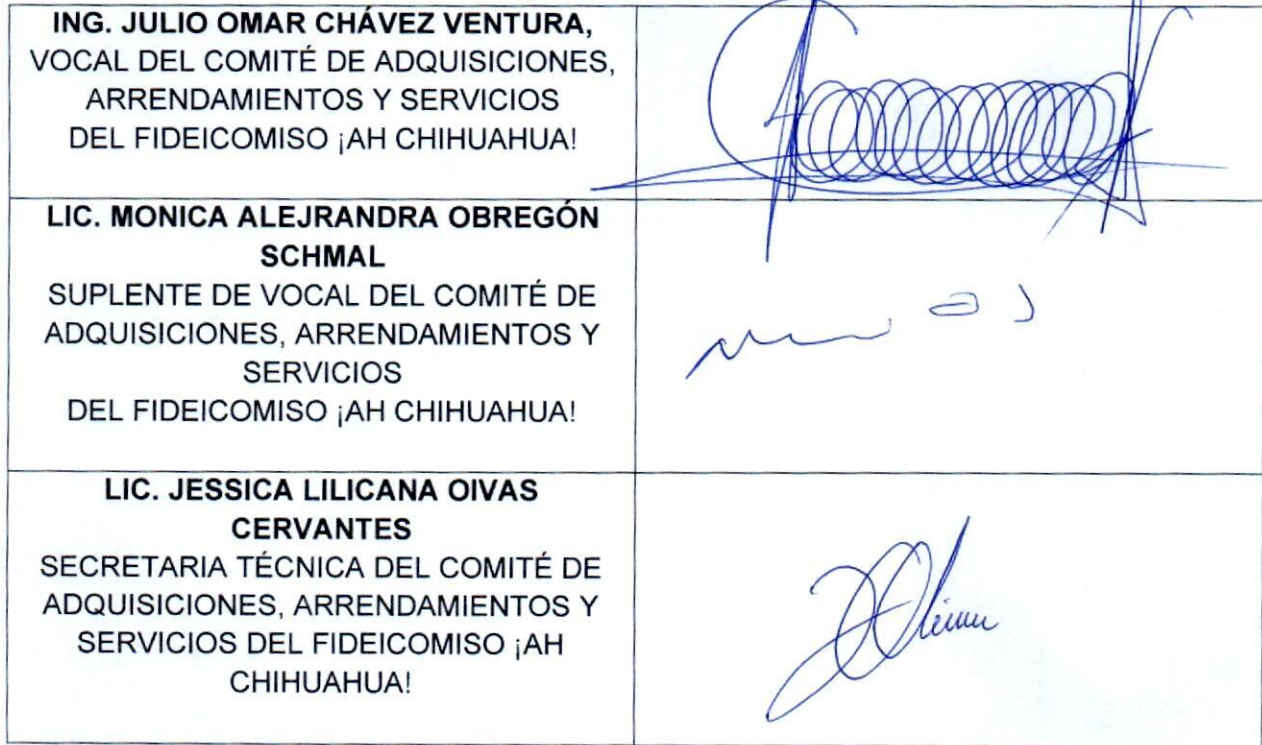 ING. JULIO OMAR CHÁVEZ VENTURA,
VOCAL DEL COMITÉ DE ADQUISICIONES,
ARRENDAMIENTOS Y SERVICIOS
DEL FIDEICOMISO ¡AH CHIHUAHUA!
LIC. MONICA ALEJRANDRA OBREGÓN
SCHMAL
SUPLENTE DE VOCAL DEL COMITÉ DE
ADQUISICIONES, ARRENDAMIENTOS Y
SERVICIOS
DEL FIDEICOMISO ¡AH CHIHUAHUA!
LIC. JESSICA LILICANA OIVAS
CERVANTES
SECRETARIA TÉCNICA DEL COMITÉ DE
ADQUISICIONES, ARRENDAMIENTOS Y
SERVICIOS DEL FIDEICOMISO ¡AH
CHIHUAHUA!